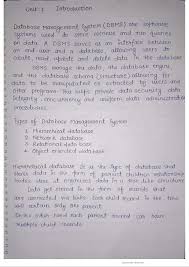 Unit: 1 Introduction
Database Management System (DBMS) are software
systems used to store retrieve and run queries
on data. A DBMS serves as an interface between
an end user and a database, allowing users to
create, read, update and delete data in the database
DBMS manage the data, the database engine,
and the database schema (structure) allowing for
data to be manipulated or extracted by users and
other programs. This helps provide data security, data
integrity, concurrency and uniform data administration
procedures.
Types of Database Management System
1. Hierarchical database
2. Network database
3. Relational database
4. Object oriented database
Hierarchical database It is the type of database that
stores data in the form of parent children relationship
nodes. Also it organizes data in a tree like structure
Data get stored in the form of records that
are connected via links. Each child record in the tree
will contain only one parent.
On the other hand each parent record can have
multiple child records.